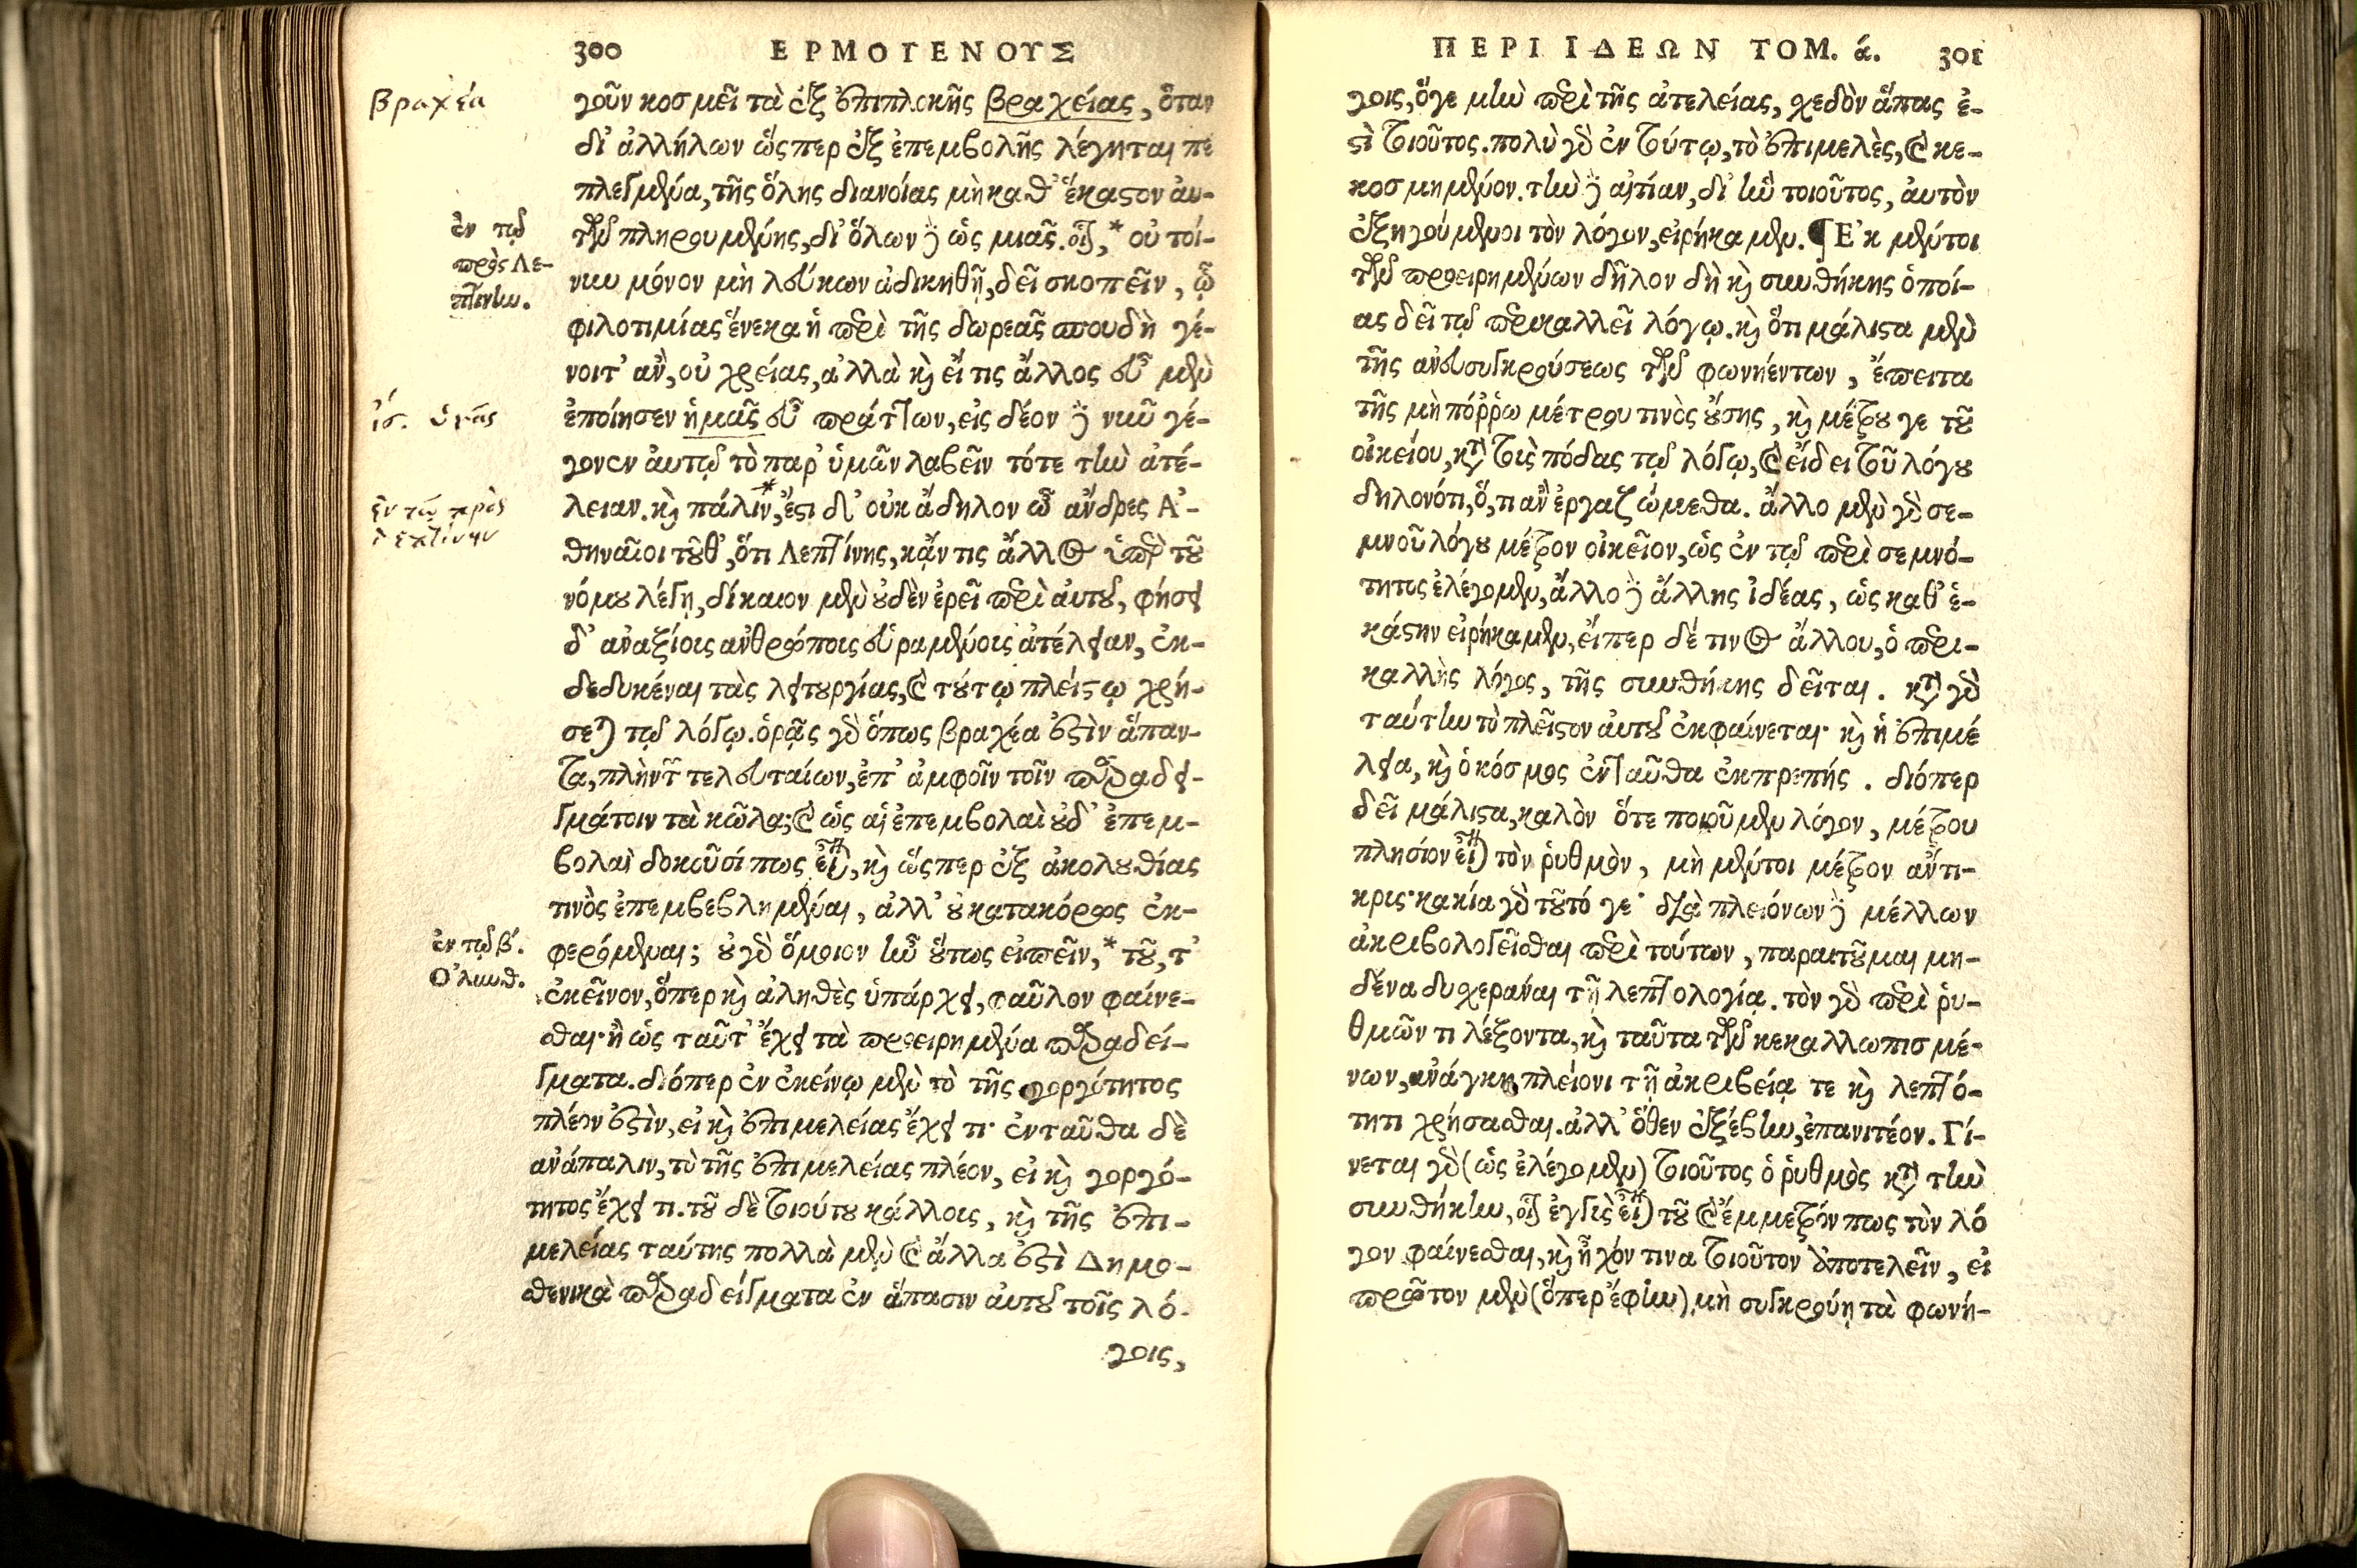 300 ΕΡΜΟΓΕΝΟΥΣ
βραχέα
γοῦν κοσμεῖ τὰ ἐξ ἐπιπλοκῆς βραχείας, ὅταν
δι' ἀλλήλων ὥσπερ ἐξ ἐπεμβολῆς λέγηται πε
πλεγμένα, τῆς ὅλης διανοίας μὴ καθ' ἕκαστον αὐ-
ἐν τῷ
πρὸς Λε-
πτίνην.
τῶν πληρουμένης, δι' ὅλων δὲ ὡς μιᾶς. οἷον, * οὐ τοί-
νυν μόνον μὴ Λεύκων ἀδικηθῇ, δεῖ σκοπεῖν, ᾧ
φιλοτιμίας ἕνεκα ἡ περὶ τῆς δωρεᾶς σπουδὴ γέ-
νοιτ' ἂν, οὐ χρείας, ἀλλὰ καὶ εἴ τις ἄλλος εὖ μὲν
ἐποίησεν ἡμᾶς εὖ πράττων, εἰς δέον δὲ νῦν γέ-
ἴσ. ὑμᾶς
γονεν αὐτῷ τὸ παρ' ὑμῶν λαβεῖν τότε τὴν ἀτέ-
λειαν. καὶ πάλιν,* ἔστι δ' οὐκ ἄδηλον ὦ ἄνδρες Ἀ-
ἐν τῷ πρὸς
Λεπτίνην
θηναῖοι τοῦθ', ὅτι Λεπτίνης, κἄν τις ἄλλος ὑπὲρ τοῦ
νόμου λέγῃ, δίκαιον μὲν οὐδὲν ἐρεῖ περὶ αὐτοῦ, φήσει
δ' ἀναξίοις ἀνθρώποις εὑραμένοις ἀτέλειαν, ἐκ-
δεδυκέναι τὰς λειτουργίας, καὶ τούτῳ πλείστῳ χρή-
σεται τῷ λόγῳ. ὁρᾷς γὰρ ὅπως βραχέα ἐστὶν ἅπαν-
τα, πλὴν τῶν τελευταίων, ἐπ' ἀμφοῖν τοῖν παραδει-
γμάτοιν τὰ κῶλα; καὶ ὡς αἱ ἐπεμβολαὶ οὐδ' ἐπεμ-
βολαὶ δοκοῦσί πως εἶναι, καὶ ὥσπερ ἐξ ἀκολουθίας
τινὸς ἐπεμβεβλημέναι, ἀλλ' οὐ κατακόρως ἐκ-
ἐν τῷ β'.
Ὀλυνθ.
φερόμεναι; οὐ γὰρ ὅμοιον ἦν οὕτως εἰπεῖν, * τοῦ, τ'
ἐκεῖνον, ὅπερ καὶ ἀληθὲς ὑπάρχει, φαῦλον φαίνε-
σθαι· ἢ ὡς ταῦτ' ἔχει τὰ προειρημένα παραδεί-
γματα. διόπερ ἐν ἐκείνῳ μὲν τὸ τῆς γοργότητος
πλέον ἐστὶν, εἰ καὶ ἐπιμελείας ἔχει τι· ἐνταῦθα δὲ
ἀνάπαλιν, τὸ τῆς ἐπιμελείας πλέον, εἰ καὶ γοργό-
τητος ἔχει τι. τοῦ δὲ τοιούτου κάλλους, καὶ τῆς ἐπι-
μελείας ταύτης πολλὰ μὲν καὶ ἄλλα ἐστὶ Δημο-
σθενικὰ παραδείγματα ἐν ἅπασιν αὐτοῦ τοῖς λό-
γοις,
ΠΕΡΙ ΙΔΕΩΝ ΤΟΜ. ά. 301
γοις, ὅγε μὴν περὶ τῆς ἀτελείας, σχεδὸν ἅπας ἐ-
στὶ τοιοῦτος. πολὺ γὰρ ἐν τούτῳ, τὸ ἐπιμελὲς, καὶ κε-
κοσμημένον. τὴν δὲ αἰτίαν, δι' ἣν τοιοῦτος, αὐτὸν
ἐξηγούμενοι τὸν λόγον, εἰρήκαμεν. ¶ Ἐκ μέντοι
τῶν προειρημένων δῆλον δὴ καὶ συνθήκης ὁποί-
ας δεῖ τῷ περικαλλεῖ λόγῳ. καὶ ὅτι μάλιστα μὲν
τῆς ἄνευ συγκρούσεως τῶν φωνηέντων, ἔπειτα
τῆς μὴ πόῤῥω μέτρου τινὸς οὔσης, καὶ μέτρου γε τοῦ
οἰκείου, κατὰ τοὺς πόδας τῷ λόγῳ, καὶ εἴδει τοῦ λόγου
δηλονότι, ὅ, τι ἂν ἐργαζώμεθα. ἄλλο μὲν γὰρ σε-
μνοῦ λόγου μέτρον οἰκεῖον, ὡς ἐν τῷ περὶ σεμνό-
τητος ἐλέγομεν, ἄλλο δὲ ἄλλης ἰδέας, ὡς καθ' ἑ-
κάστην εἰρήκαμεν, εἴπερ δέ τινος ἄλλου, ὁ περι-
καλλὴς λόγος, τῆς συνθήκης δεῖται. κατὰ γὰρ
ταύτην τὸ πλεῖστον αὐτοῦ ἐκφαίνεται· καὶ ἡ ἐπιμέ
λεια, καὶ ὁ κόσμος ἐνταῦθα ἐκπρεπής. διόπερ
δεῖ μάλιστα, καλὸν ὅτε ποιοῦμεν λόγον, μέτρου
πλησίον εἶναι τὸν ῥυθμὸν, μὴ μέντοι μέτρον ἄντι-
κρις· κακία γὰρ τοῦτό γε· διὰ πλειόνων δὲ μέλλων
ἀκριβολογεῖσθαι περὶ τούτων, παραιτοῦμαι μη-
δένα δυσχερᾶναι τῇ λεπτολογίᾳ. τὸν γὰρ περὶ ῥυ-
θμῶν τι λέξοντα, καὶ ταῦτα τῶν κεκαλλωπισμέ-
νων, ἀνάγκη πλείονι τῇ ἀκριβείᾳ τε καὶ λεπτό-
τητι χρήσασθαι. ἀλλ' ὅθεν ἐξέβην, ἐπανιτέον. Γί-
νεται γὰρ (ὡς ἐλέγομεν) τοιοῦτος ὁ ῥυθμὸς κατὰ τὴν
συνθήκην, οἷον ἐγγὺς εἶναι τοῦ καὶ ἔμμετρόν πως τὸν λό
γον φαίνεσθαι, καὶ ἦχόν τινα τοιοῦτον ἀποτελεῖν, εἰ
πρῶτον μὲν (ὅπερ ἔφην) μὴ συγκρούῃ τὰ φωνή-